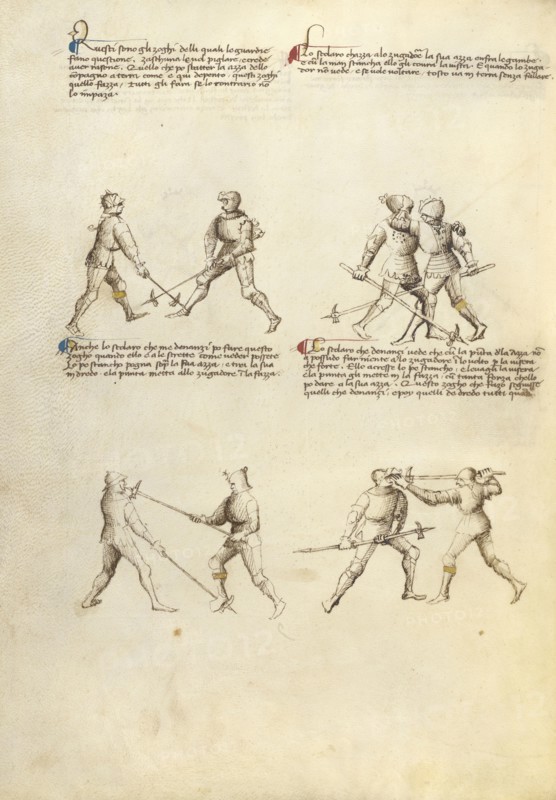 Questi sono gli zoghi delli quali le guardie
fano questione. Zaschuna le vol pigliare, e crede
aver rasone. Quello che po sbatter la azza dello
compagno a terra come e qui depento, questi zoghi
quello fazza, tutti gli fara se lo contrario no
lo impaza.
Lo scolaro chazza a lo zugadore la sua azza enfra le gambe
e cum la man stancha ello gli covra la vista. E quando lo zuga-
dor no vede, e se vole voltare, tosto va in terra senza fallare.
Anche lo scolaro che me denanzi po fare questo
zoghi quando ello e ale strette come vedere possete
Lo pe stancho pogna sopra la sua azza, e tira la sua
in dredo, e la punta metta allo zugadore in la fazza.
Lo scolaro che denanzi vede che cum la punta dla azza no
po possudo far niente a lo zugadore in lo volto per la visera
che forte. Ello acresse lo pe stancho, e levagli la visera
e la punta gli mette in la fazza, cum tanta forza chello
po dare a la sua azza. Questo zogho che fazo seguisse
quelli che denanzi, e poy quelli de dredo tutti
PHOTO12